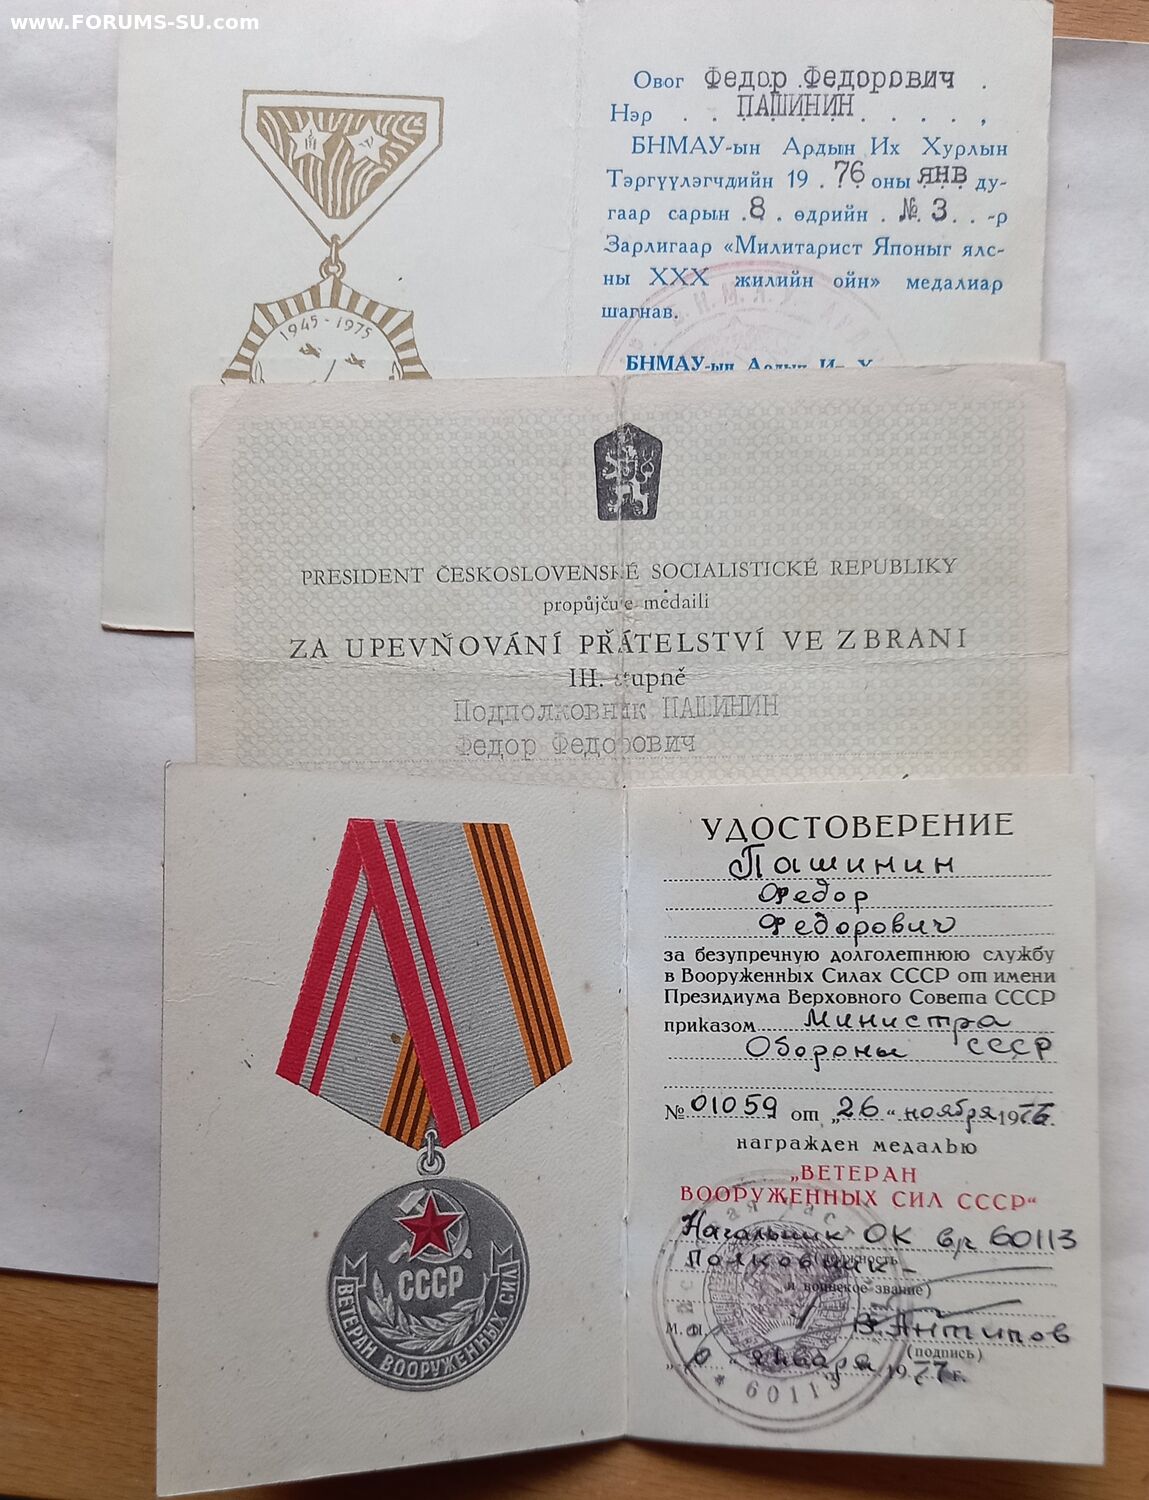 www.FORUMS-SU.com
1945-1975
Овог Федор Федорович .
Нэр . . ПАШИНИН . . . . . ,
БНМАУ-ын Ардын Их Хурлын
Тэргүүлэгчдийн 19 . 76 оны янв ду-
гаар сарын . 8 . өдрийн . № 3 . . -р
Зарлигаар «Милитарист Японыг ялс-
ны XXX жилийн ойн» медалиар
шагнав.
БНМАУ-ын Ардын Их
PRESIDENT ČESKOSLOVENSKÉ SOCIALISTICKÉ REPUBLIKY
propůjčuje medaili
ZA UPEVŇOVÁNÍ PŘÁTELSTVÍ VE ZBRANI
III. stupně
Подполковник ПАШИНИН
Федор Федорович
СССР
ВЕТЕРАН ВООРУЖЕННЫХ СИЛ
УДОСТОВЕРЕНИЕ
Пашинин
Федор
Федорович
за безупречную долголетнюю службу
в Вооруженных Силах СССР от имени
Президиума Верховного Совета СССР
приказом Министра
Обороны СССР
№ 01059 от „26“ ноября 1976.
награжден медалью
„ВЕТЕРАН
ВООРУЖЕННЫХ СИЛ СССР“
Начальник ОК в/ч 60113
(должность
Полковник
и воинское звание)
М. П. В. Антипов
(подпись)
января 1977 г.
60113